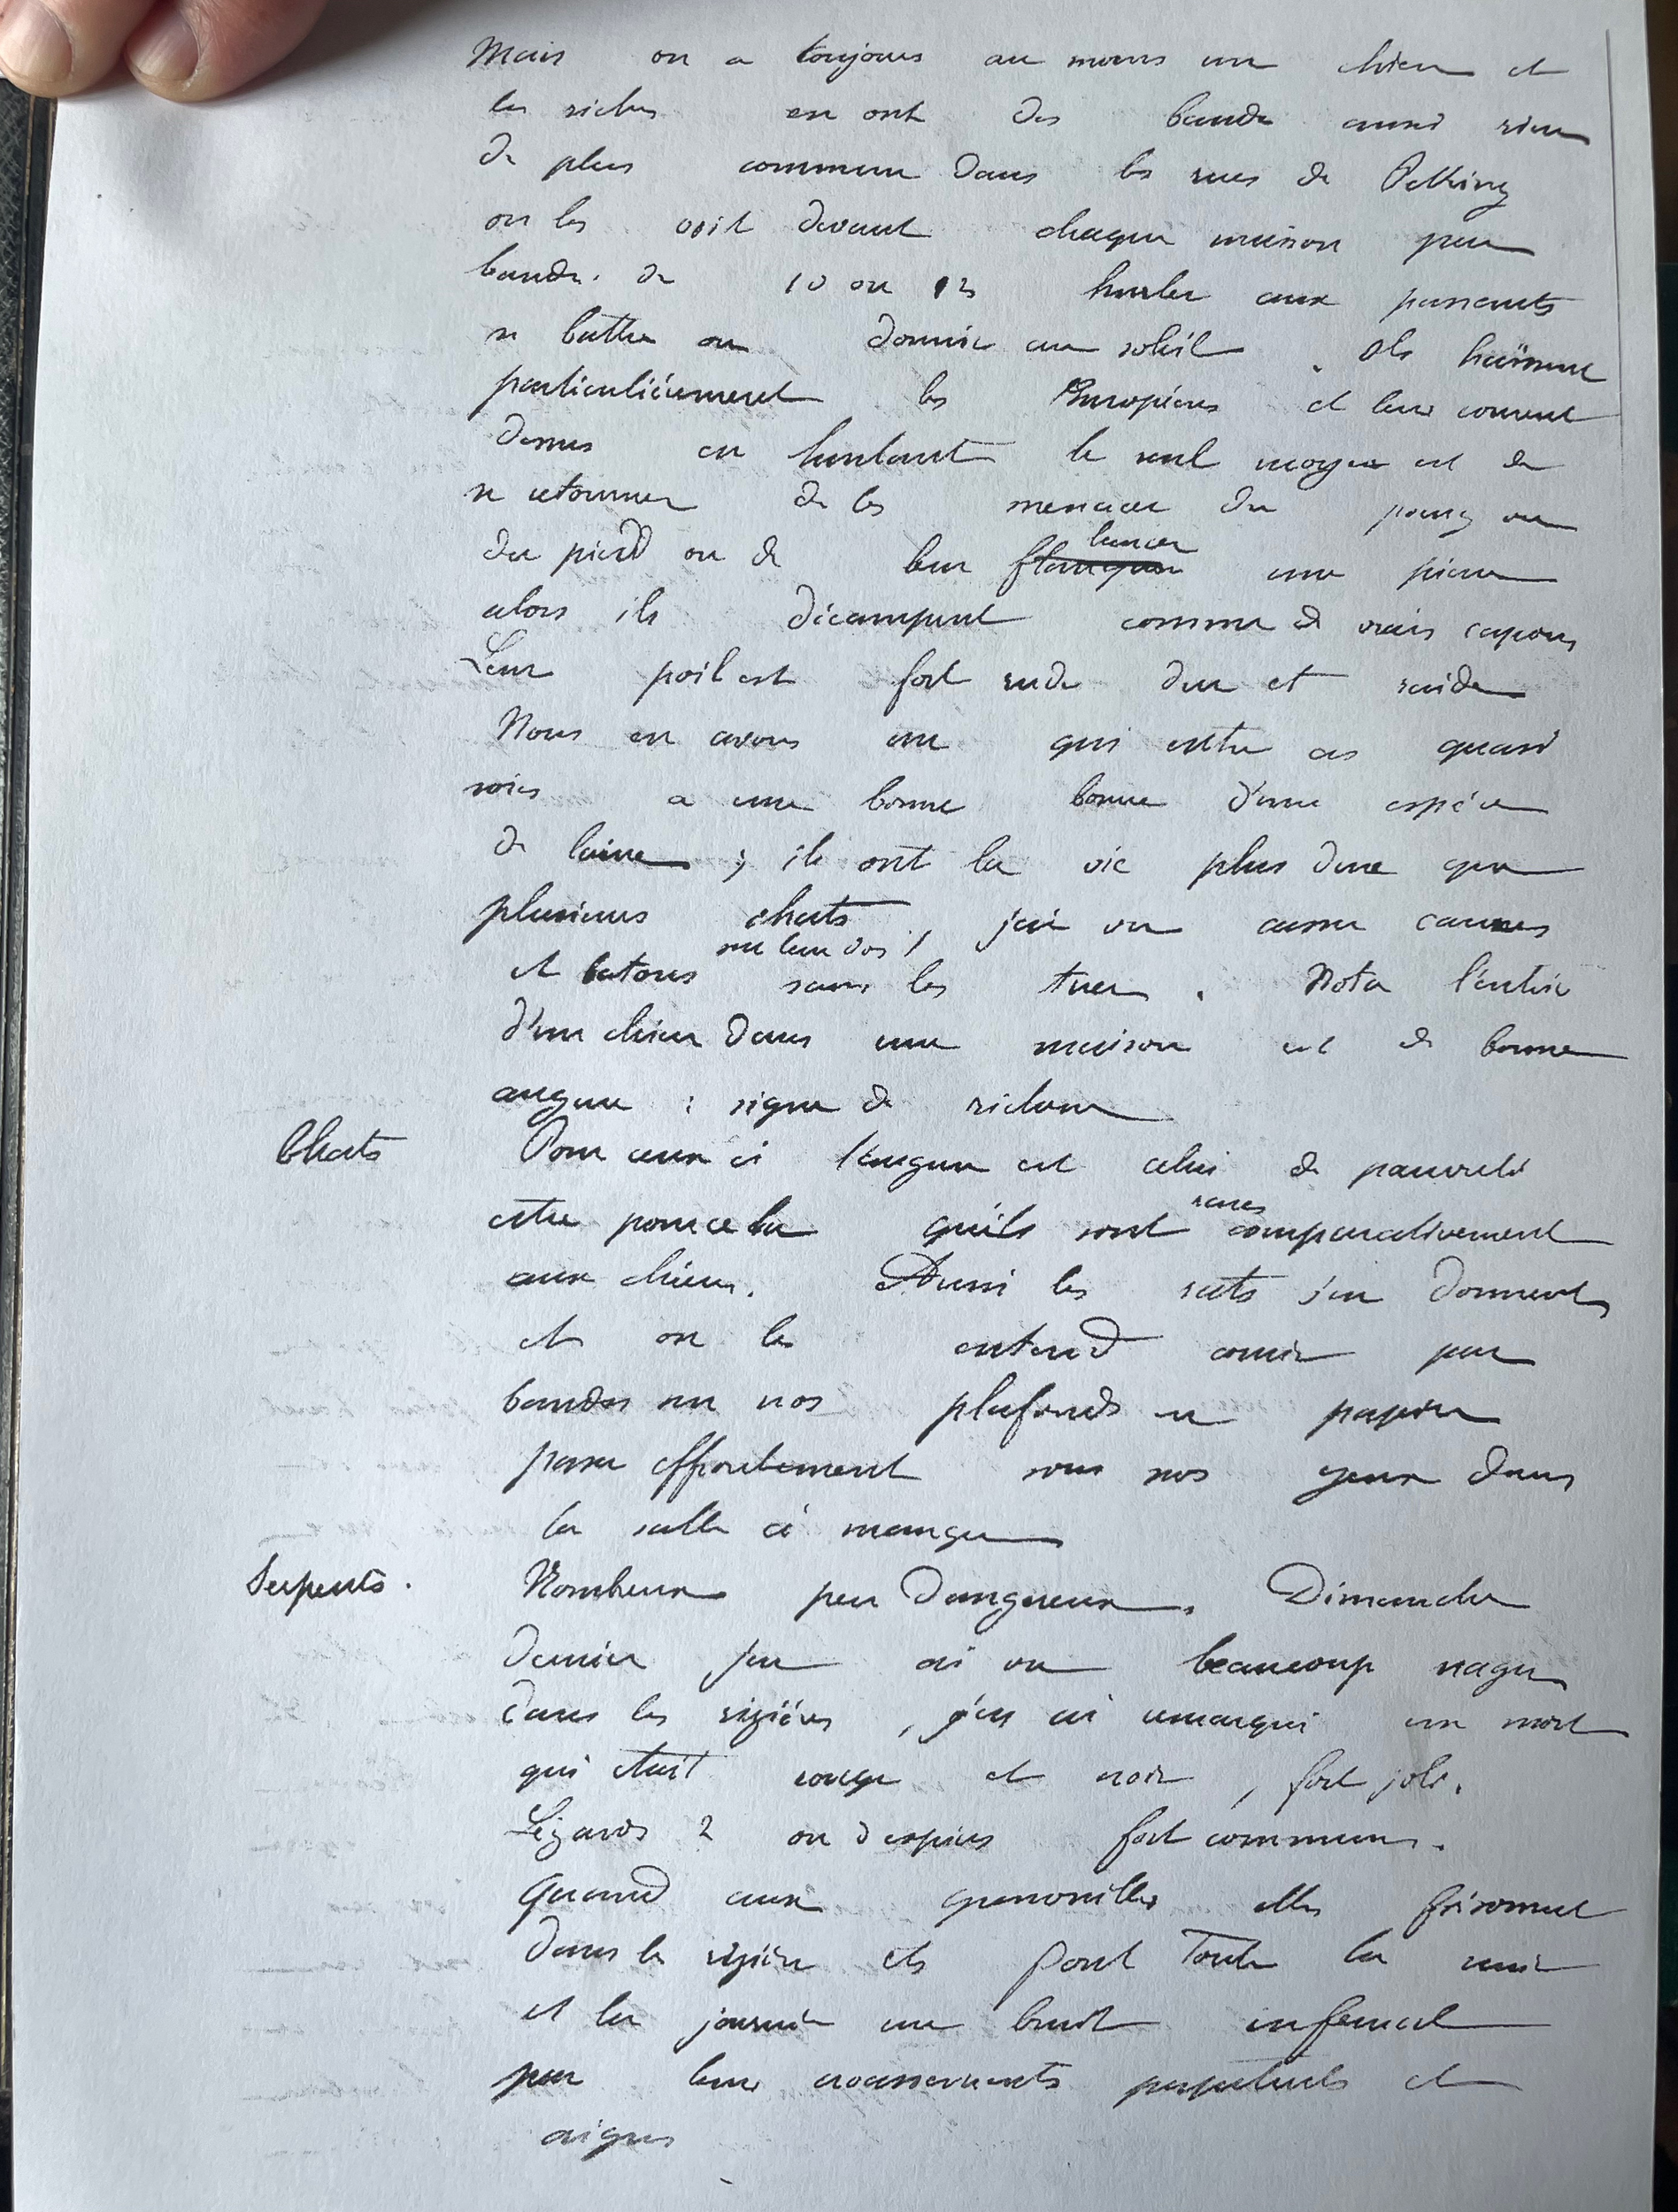 Mais on a toujours au moins un chien et
les riches en ont des bandes aussi rien
de plus commun dans les rues de Péking
on les voit devant chaque maison par
bandes de 10 ou 12 hurler aux passants
se battre ou dormir au soleil. Ils haïssent
particulièrement les Européens et leur courent
dessus en hurlant le seul moyen est de
se retourner de les menacer du poing ou
du pied ou de leur flanquer lancer une pierre
alors ils décampent comme de vrais capons
Leur poil est fort rude dur et raide
Nous en avons un qui outre ces quasi
soies a une bonne bourre d'une espèce
de laine ; ils ont la vie plus dure que
plusieurs chats, j'ai vu casser cannes
et batons sur leur dos, sans les tuer. Nota l'entrée
d'un chien dans une maison est de bonne
augure : signe de richesse
Chats Pour ceux ci l'augure est celui de pauvreté
est ce pour cela qu'ils sont rares comparativement
aux chiens. Aussi les rats s'en donnent
et on les entend courir par
bandes sur nos plafonds en papier
passer effrontement sous nos yeux dans
la salle à manger
Serpents. Nombreux peu dangereux. Dimanche
dernier j'en ai vu beaucoup nager
dans les rizières, j'en ai remarqué un mort
qui était rouge et noir, fort joli.
Lézards 2 ou 3 espèces fort communes.
Quand aux grenouilles elles foisonnent
dans la rizière et font toute la nuit
et la journée un bruit infernal
par leurs croassements perpétuels et
aigus